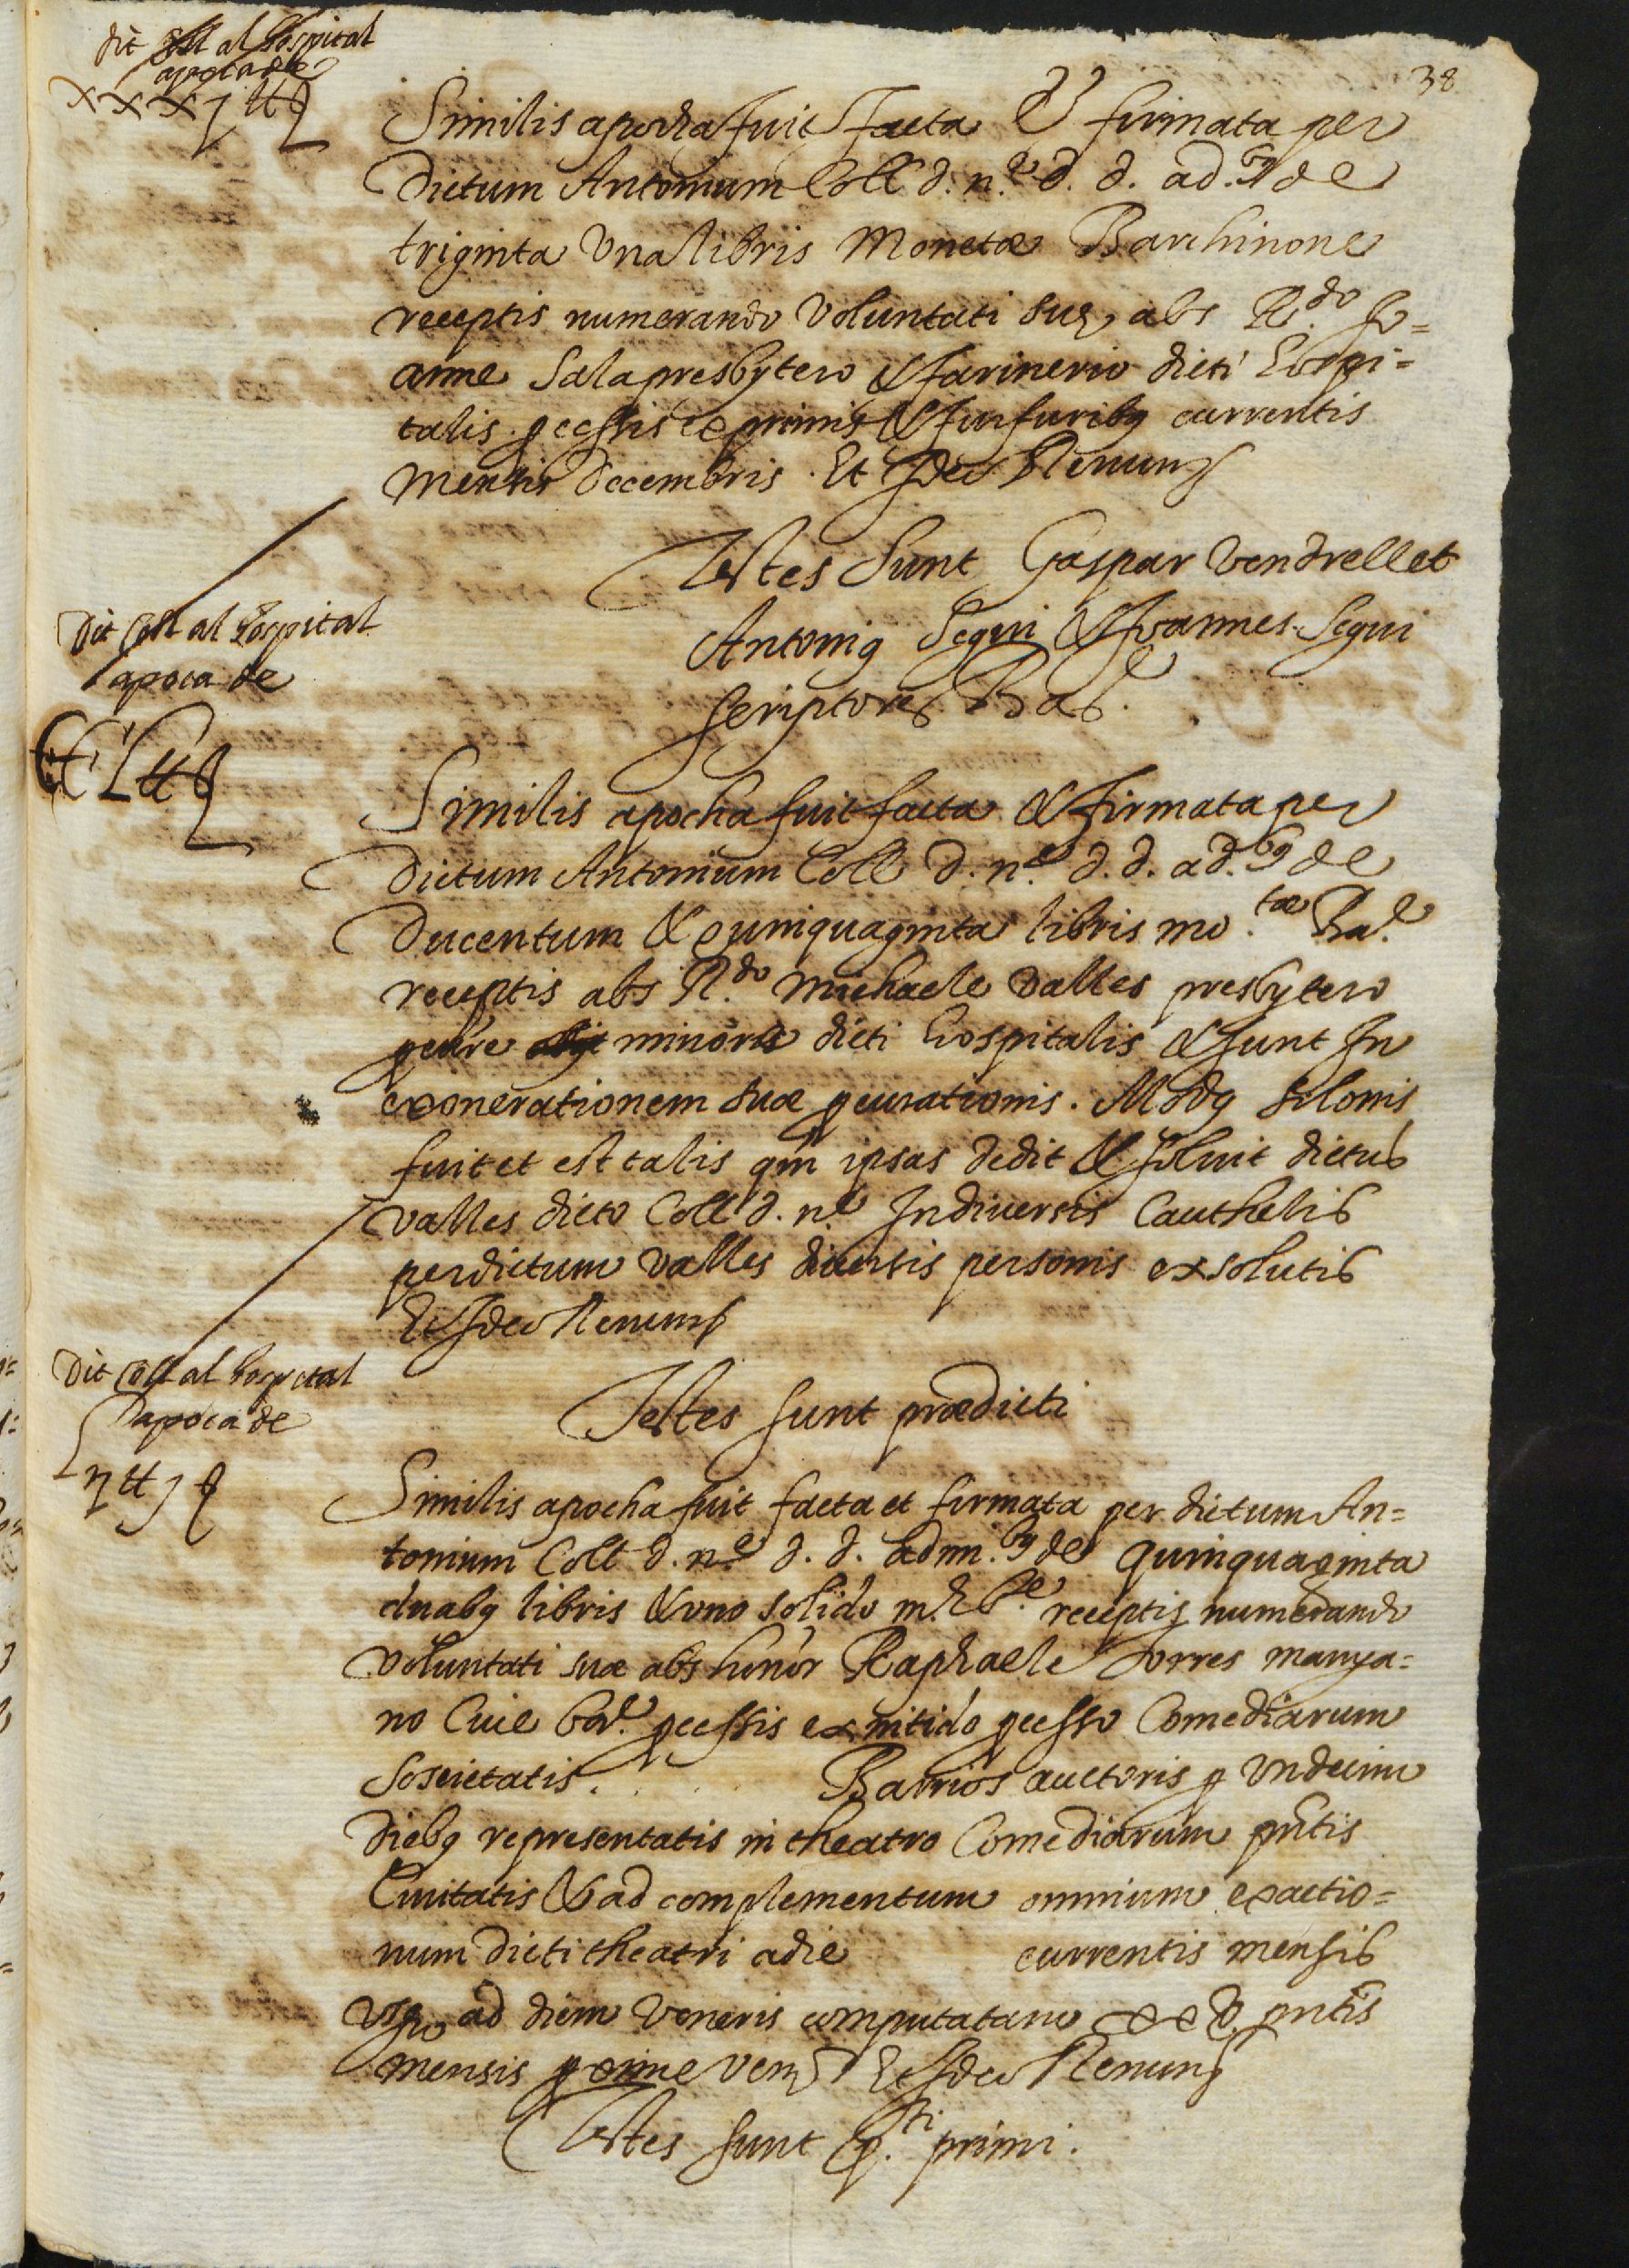 38
dit Coll al hospital
apoca de
xxxj ₶
Similis apocha fuit facta & firmata per
dictum Antonium Coll d. n.e d. d. ad.bus de
triginta una libris monetæ Barchinone
receptis numerando voluntati suę abs R.do Jo=
anne Sala presbytero & farinerio dicti hospi=
talis. pcessis ex primis & furfuribq currentis
mensis decembris. Et Ideo Renuns
Testes sunt Gaspar Vendrell et
Antoniq Segui & Joannes Segui
scriptores Bar.e
Dit Coll al hospital
apoca de
CCL ₶
Similis apocha fuit facta & firmata per
dictum Antonium Coll d. n.e d. d. ad.bus de
Ducentum & quinquaginta libris mo.tæ Ba.e
receptis abs R.do Michaele Valles presbytero
pcure minoris dicti hospitalis & sunt In
exonerationem suæ pcurationis. Modq solonis
fuit et est talis qm ipsas dedit & soluit dictus
Valles dicto Coll d. n.e In diuersis Cauthelis
per dictum Valles diuersis personis exsolutis
Et Ideo Renuns
Dit Coll al hospital
apoca de
Lij ₶ j
Testes sunt prædicti
Similis apocha fuit facta et firmata per dictum An=
tonium Coll d. n.e d. d. adm.bus de quinquaginta
duabq libris & uno solido m. B.e receptis numerando
voluntati suæ abs honor Raphaele Torres manya=
no Ciue bar.e pcessis ex nitido pcesso Comediarum
Soscietatis . . . Barrios auctoris p undecim
diebq representatis in theatro Comediarum pntis
Ciuitatis & ad complementum omnium exactio=
num dicti theatri a die currentis mensis
usq ad diem Veneris computatam pntis
mensis pxime ven Et Ideo Renuns
Testes sunt p.ti primi.